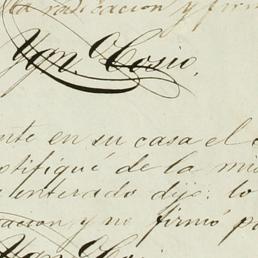 la radicacion y firm
Ygn. Cosio.
nte en su casa el
otifiqué de la mi
enterado dijo: lo
tacion, y no firmó p
Ygn. Cosio